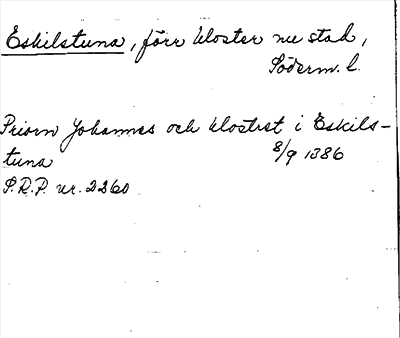 Eskilstuna, förr kloster nu stad,
Söderm. l.
Priorn Johannes och klostret i Eskils-
tuna 8/9 1386
S.R.P. nr. 2260